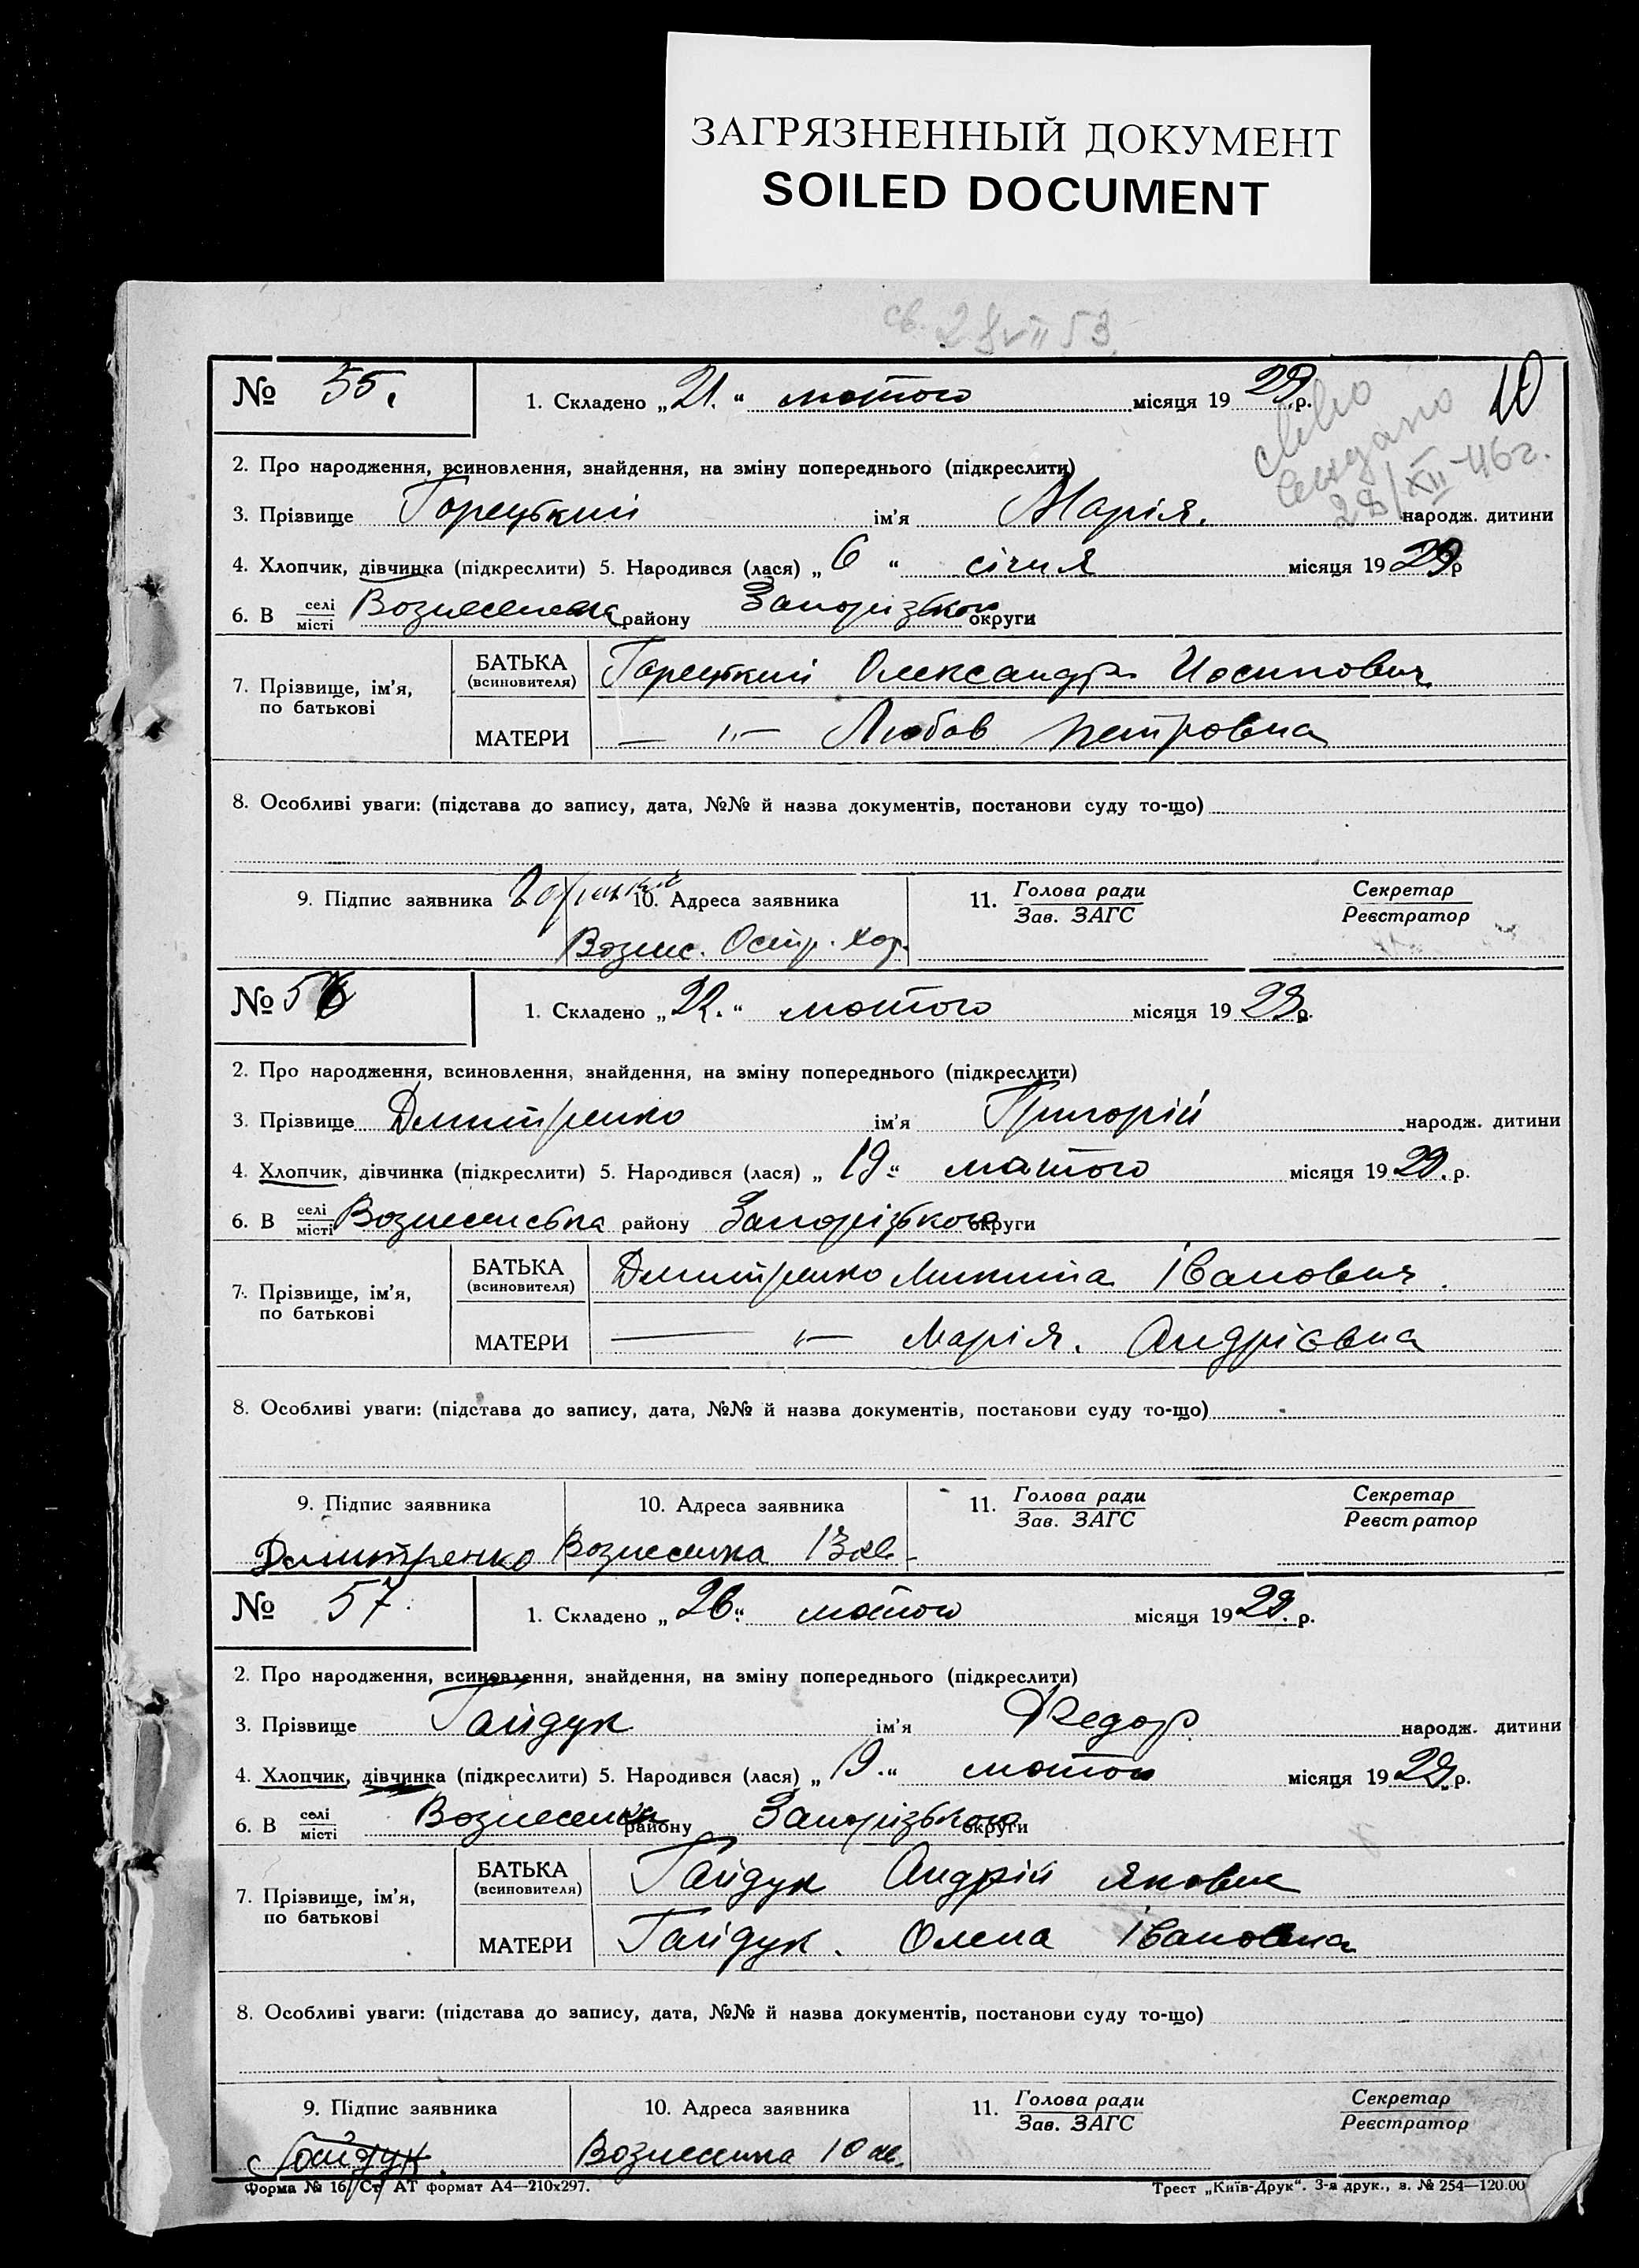 ЗАГРЯЗНЕННЫЙ ДОКУМЕНТ
SOILED DOCUMENT
св. 28 VII 53
10
№ 55.
1. Складено „21.“ лютого місяця 1929 р.
2. Про народження, всиновлення, знайдення, на зміну попереднього (підкреслити)
28/XII-46 г.
3. Прізвище Горецький ім'я Марія. народж. дитини
4. Хлопчик, дівчинка (підкреслити) 5. Народився (лася) „6“ січня місяця 1929 р
6. В селі/місті Вознесенка району Запорізького округи
7. Прізвище, ім'я, по батькові
БАТЬКА (всиновителя) Горецький Олександр Иосипович
МАТЕРИ — „ — Любов Петровна
8. Особливі уваги: (підстава до запису, дата, №№ й назва документів, постанови суду то-що)
9. Підпис заявника Горецкий 10. Адреса заявника 11. Голова ради/Зав. ЗАГС Секретар/Реєстратор
Вознес. Остр. Хор.
№ 56
1. Складено „22.“ лютого місяця 1929 р.
2. Про народження, всиновлення, знайдення, на зміну попереднього (підкреслити)
3. Прізвище Дмитренко ім'я Григорій народж. дитини
4. Хлопчик, дівчинка (підкреслити) 5. Народився (лася) „19“ лютого місяця 1929. р.
6. В селі/місті Вознесенська району Запорізького округи
7. Прізвище, ім'я, по батькові
БАТЬКА (всиновителя) Дмитренко Микита Іванович.
МАТЕРИ — „ — Марія. Андрієвна
8. Особливі уваги: (підстава до запису, дата, №№ й назва документів, постанови суду то-що)
9. Підпис заявника 10. Адреса заявника 11. Голова ради/Зав. ЗАГС Секретар/Реєстратор
Дмитренко Вознесенка 13 кв.
№ 57.
1. Складено „26.“ лютого місяця 1929. р.
2. Про народження, всиновлення, знайдення, на зміну попереднього (підкреслити)
3. Прізвище Гайдук ім'я Федор народж. дитини
4. Хлопчик, дівчинка (підкреслити) 5. Народився (лася) „19.“ лютого місяця 1929. р.
6. В селі/місті Вознесенка району Запорізького округи
7. Прізвище, ім'я, по батькові
БАТЬКА (всиновителя) Гайдук Андрій Якович
МАТЕРИ Гайдук. Олена Івановна
8. Особливі уваги: (підстава до запису, дата, №№ й назва документів, постанови суду то-що)
9. Підпис заявника 10. Адреса заявника 11. Голова ради/Зав. ЗАГС Секретар/Реєстратор
Гайдук. Вознесенка 10 кв.
Форма № 16, Ст АТ формат А4—210х297. Трест „Київ-Друк“. 3-я друк., з. № 254—120.00